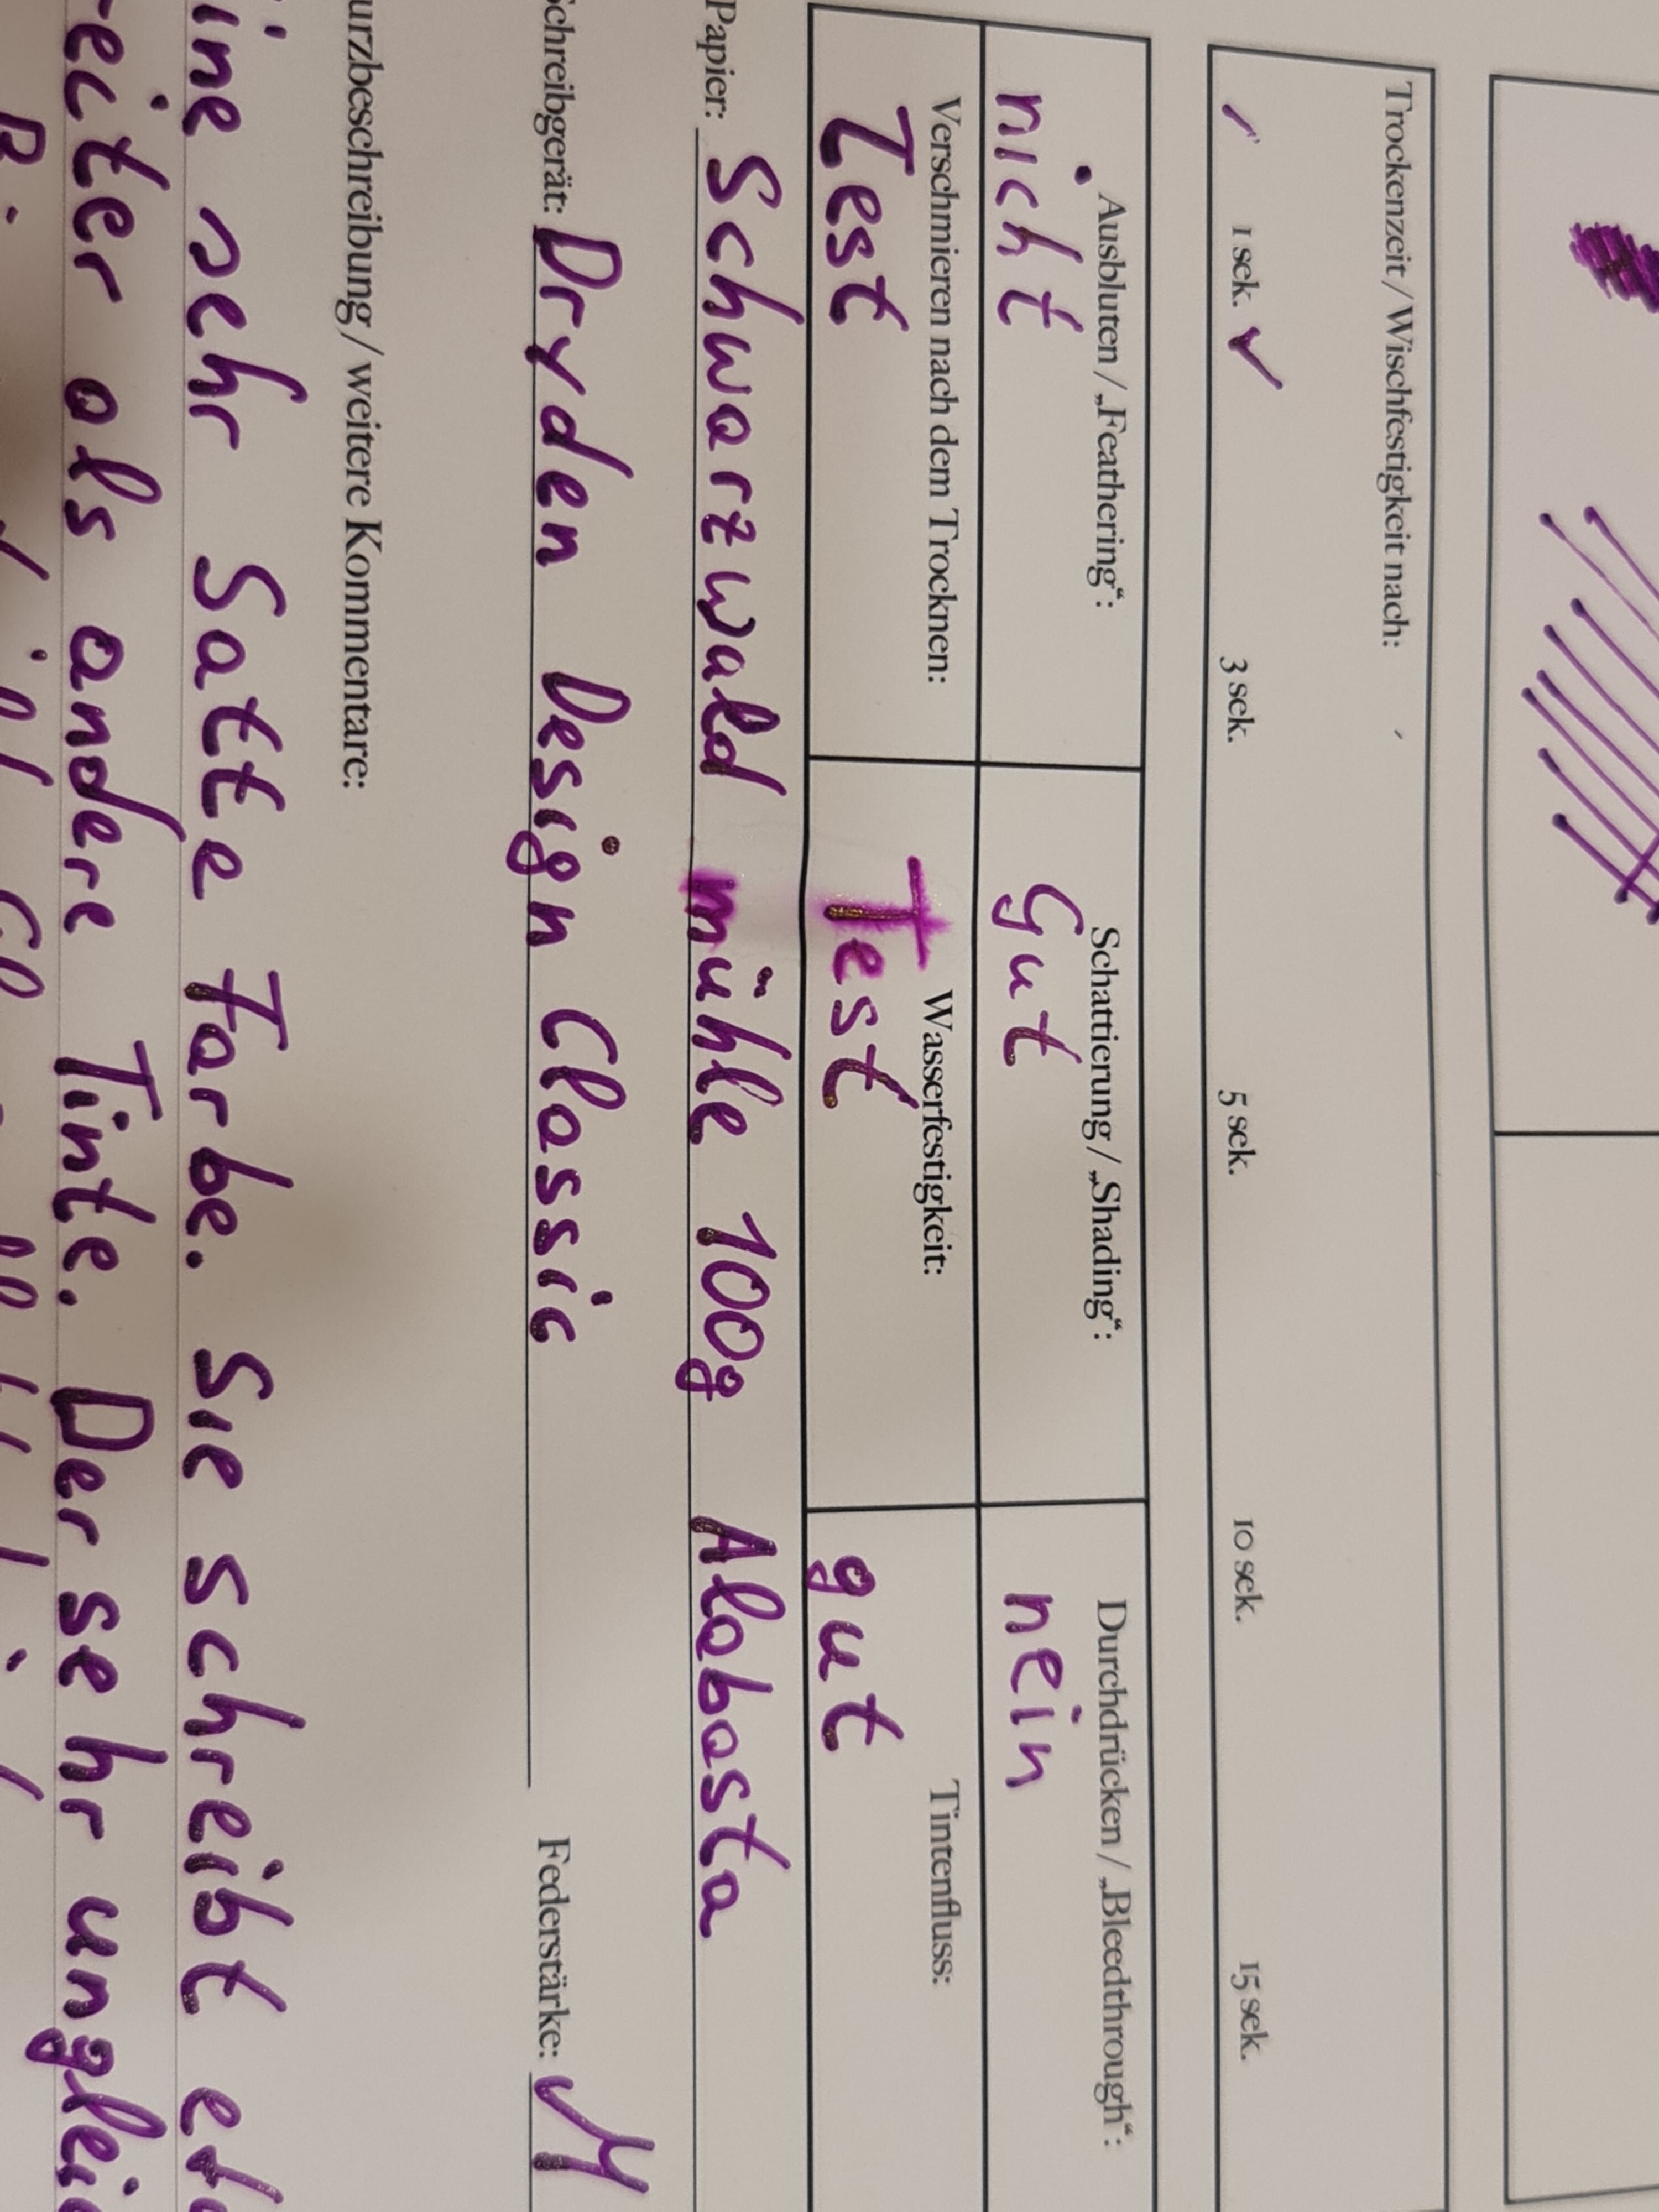 Trockenzeit / Wischfestigkeit nach:
1 sek. ✓ 3 sek. 5 sek. 10 sek. 15 sek.
Ausbluten / „Feathering“: Schattierung / „Shading“: Durchdrücken / „Bleedthrough“:
nicht Gut nein
Verschmieren nach dem Trocknen: Wasserfestigkeit: Tintenfluss:
Test Test gut
Papier: Schwarzwald mühle 100g Alabasta
Schreibgerät: Dryden Design Classic Federstärke: M
urzbeschreibung / weitere Kommentare:
ine sehr Satte Farbe. Sie schreibt
eiter als andere Tinte. Der sehr